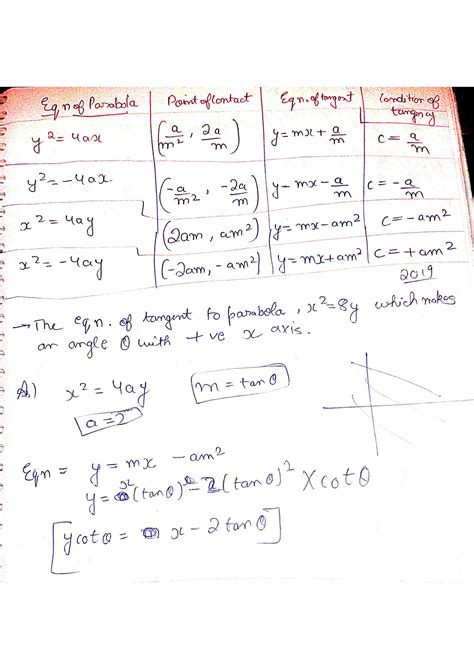 Eqn of Parabola Point of Contact Eqn. of tangent Condition of tangency
y² = 4ax (a/m², 2a/m) y = mx + a/m c = a/m
y² = -4ax (-a/m², -2a/m) y = mx - a/m c = -a/m
x² = 4ay (2am, am²) y = mx - am² c = -am²
x² = -4ay (-2am, -am²) y = mx + am² c = +am²
2019
→ The eqn. of tangent to parabola, x² = 8y which makes
an angle θ with +ve x axis.
A) x² = 4ay m = tanθ
a = 2
Eqn = y = mx - am²
y = x (tanθ) - 2 (tanθ)² X cotθ
y cotθ = x - 2 tanθ